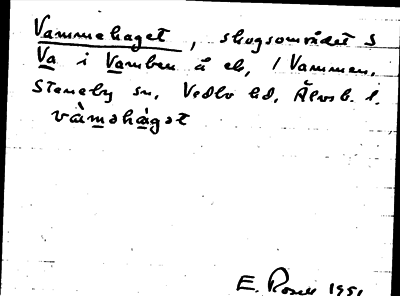 Vammehaget, skogsområdet S
Va i Vamben å eb, / Vammen.
Steneby sn, Vedbo hd, Älvsb. l.
vàmǝhágǝt
E. Rosell 1951